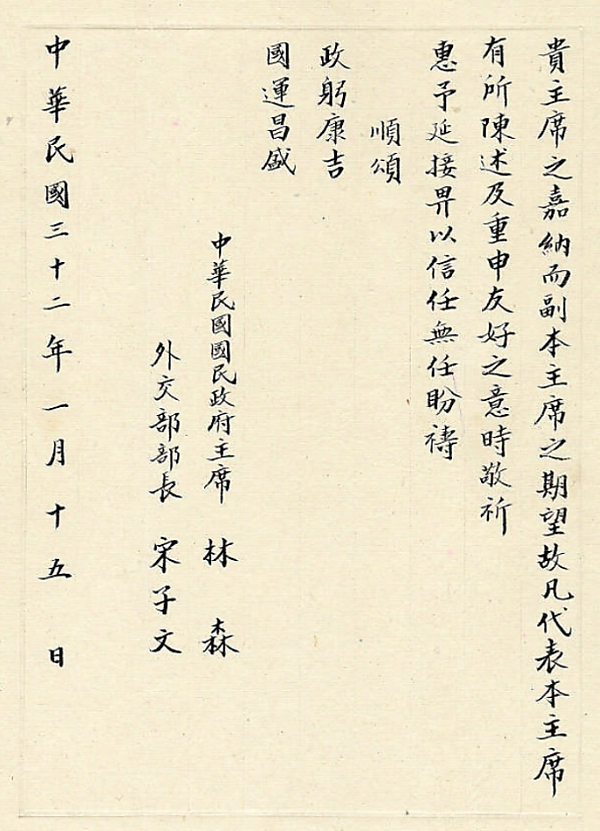 貴主席之嘉納而副本主席之期望故凡代表本主席
有所陳述及重申友好之意時敬祈
惠予延接畀以信任無任盼禱
順頌
政躬康吉
國運昌盛
中華民國國民政府主席 林森
外交部部長 宋子文
中華民國三十二年一月十五日